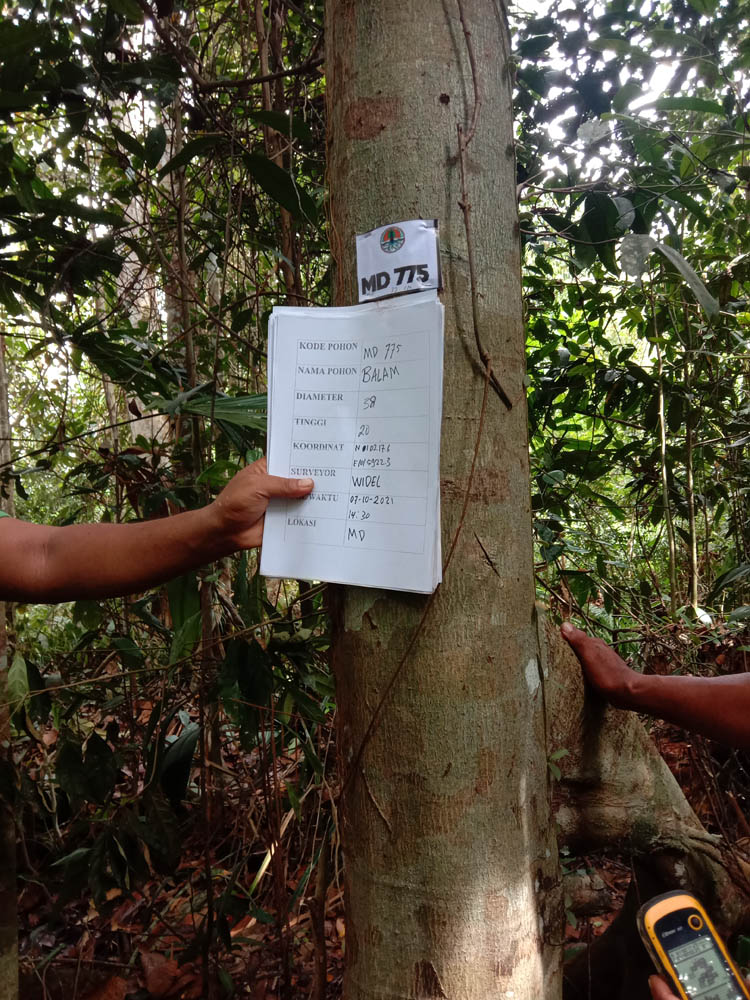 MD 775
KODE POHON MD 775
NAMA POHON BALAM
DIAMETER 38
TINGGI 20
KOORDINAT
SURVEYOR WIDEL
WAKTU 07-10-2021
14:30
LOKASI MD